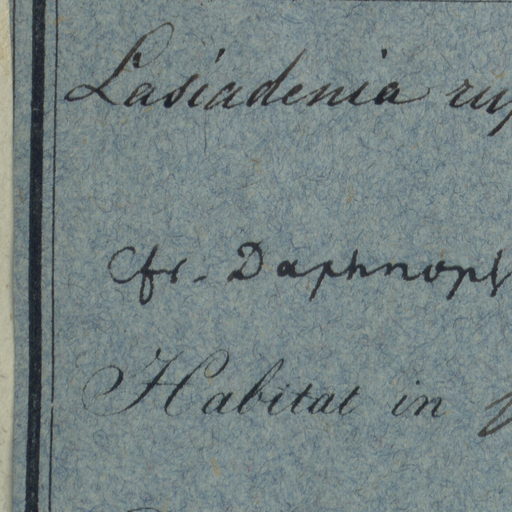 Lasiadenia rup
Cfr. Daphnops
Habitat in